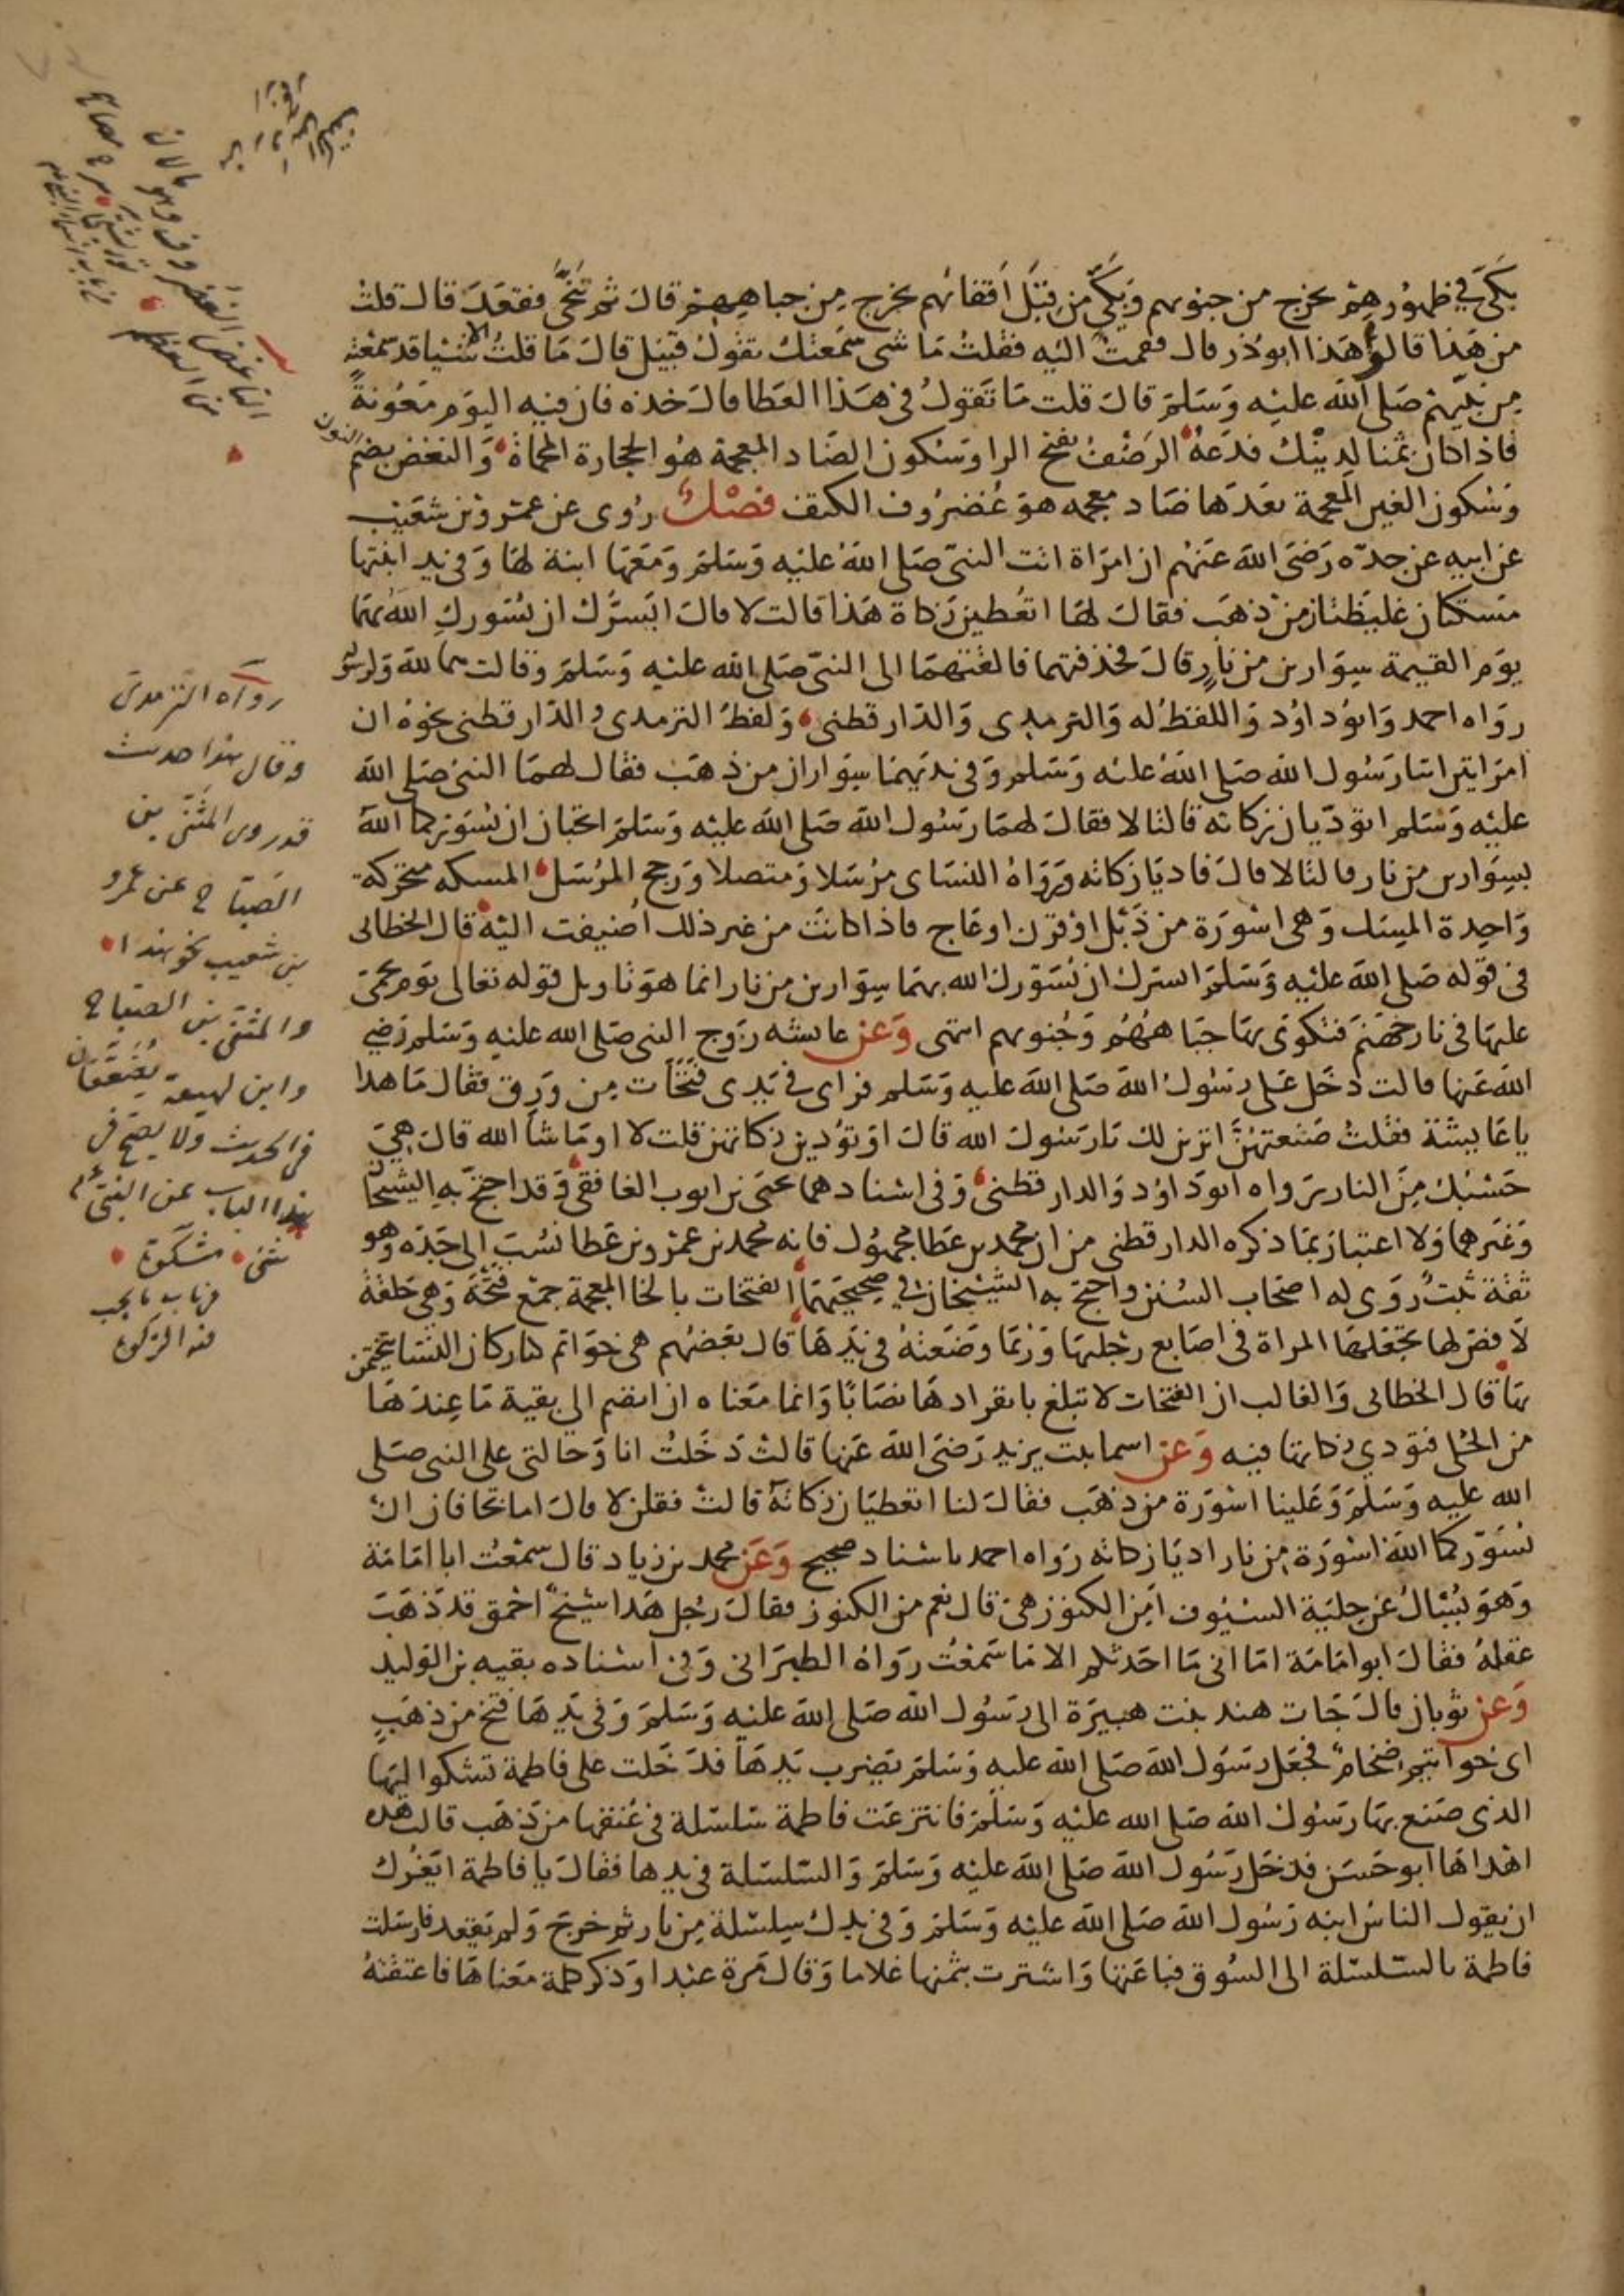 بكي في ظهورهم يخرج من جنوبهم وبكي من قبل اقفائهم يخرج من جباههم قال ثم تنحى فقعد قال قلت
من هذا قالوا هذا ابو ذر قال فقمت اليه فقلت ما شي سمعتك تقول قبيل قال ما قلت الا شيا قد سمعته
من نبيهم صلى الله عليه وسلم قال قلت ما تقول في هذا العطا قال خذه فان فيه اليوم معونة
فاذا كان ثمنا لدينك فدعه الرضف بفتح الرا وسكون الضاد المعجمة هو الحجارة المحماة والنغض بضم النون
وسكون الغين المعجمة بعدها ضاد معجمه هو غضروف الكتف فصل روى عن عمرو بن شعيب
عن ابيه عن جده رضي الله عنهم ان امراة اتت النبي صلى الله عليه وسلم ومعها ابنة لها وفي يد ابنتها
مسكتان غليظتان من ذهب فقال لها اتعطين زكاة هذا قالت لا قال ايسرك ان يسورك الله بهما
يوم القيمة سوارين من نار قال فخذفتهما فالقتهما الى النبي صلى الله عليه وسلم وقالت هما لله ولرسوله
رواه احمد وابو داود واللفظ له والترمدي والدارقطني ولفظ الترمدي والدارقطني نحوه ان
امراتين اتتا رسول الله صلى الله عليه وسلم وفي يديهما سواران من ذهب فقال لهما النبي صلى الله
عليه وسلم اتوديان زكاته قالتا لا فقال لهما رسول الله صلى الله عليه وسلم اتحبان ان يسوركما الله
بسوارين من نار قالتا لا قال فاديا زكاته ورواه النساي مرسلا ومتصلا ورجح المرسل المسكه متحركة
واحدة المسك وهي اسورة من ذبل او قرن او عاج فاذا كانت من غير ذلك اضيفت اليه قال الخطابي
في قوله صلى الله عليه وسلم ايسرك ان يسورك الله بهما سوارين من نار انما هو تاويل قوله تعالى يوم يحمى
عليها في نار جهنم فتكوى بها جباههم وجنوبهم انتهى وعن عايشه زوج النبي صلى الله عليه وسلم رضي
الله عنها قالت دخل على رسول الله صلى الله عليه وسلم فراى في يدي فتخات من ورق فقال ما هدا
يا عايشة فقلت صنعتهن اتزين لك يا رسول الله قال اوتودين زكاتهن قلت لا او ما شا الله قال هي
حسبك من النار رواه ابو داود والدارقطني وفي اسنادهما يحيى بن ايوب الغافقي وقد احتج به الشيخان
وغيرهما ولا اعتبار بما ذكره الدارقطني من ان محمد بن عطا مجهول فانه محمد بن عمرو بن عطا نسب الى جده وهو
ثقة ثبت روى له اصحاب السنن واحتج به الشيخان في صحيحيهما الفتخات بالخا المعجمة جمع فتخة وهي حلقة
لا فص لها تجعلها المراة في اصابع رجليها وربما وضعته في يدها قال بعضهم هي خواتم كبار كان النسا يتختمن
بها قال الخطابي والغالب ان الفتخات لا تبلغ بانفرادها نصابا وانما معناه ان تضم الى بقية ما عندها
من الحلي فتودي زكاتها فيه وعن اسما بنت يزيد رضي الله عنها قالت دخلت انا وخالتي على النبي صلى
الله عليه وسلم وعلينا اسورة من ذهب فقال لنا اتعطيان زكاته قالت فقلن لا قال اما تخافان ان
يسوركما الله اسورة من نار اديا زكاته رواه احمد باسناد صحيح وعن محمد بن زياد قال سمعت ابا امامة
وهو يسال عن حلية السيوف امن الكنوز هي قال نعم من الكنوز فقال رجل هدا شيخ احمق قد ذهب
عقله فقال ابو امامة اما اني ما احدثكم الا ما سمعت رواه الطبراني وفي اسناده بقيه بن الوليد
وعن ثوبان قال جات هند بنت هبيرة الى رسول الله صلى الله عليه وسلم وفي يدها فتخ من ذهب
اي خواتيم ضخام فجعل رسول الله صلى الله عليه وسلم يضرب يدها فدخلت على فاطمة تشكوا اليها
الذي صنع بها رسول الله صلى الله عليه وسلم فانتزعت فاطمة سلسلة في عنقها من ذهب قالت هده
اهداها ابو حسن فدخل رسول الله صلى الله عليه وسلم والسلسلة في يدها فقال يا فاطمة ايغرك
ان يقول الناس ابنه رسول الله صلى الله عليه وسلم وفي يدك سلسلة من نار ثم خرج ولم يقعد فارسلت
فاطمة بالسلسلة الى السوق فباعتها واشترت بثمنها غلاما وقال مرة عبدا وذكر كلمة معناها فاعتقته
رواه الترمدي
وقال هذا حديث
قد روى المثنى بن
الصباح عن عمرو
بن شعيب نحو هذا
والمثنى بن الصباح
وابن لهيعة يضعفان
في الحديث ولا يصح في
هذا الباب عن النبي عم
شي مشكوة
في باب ما يجب
فيه الزكوة